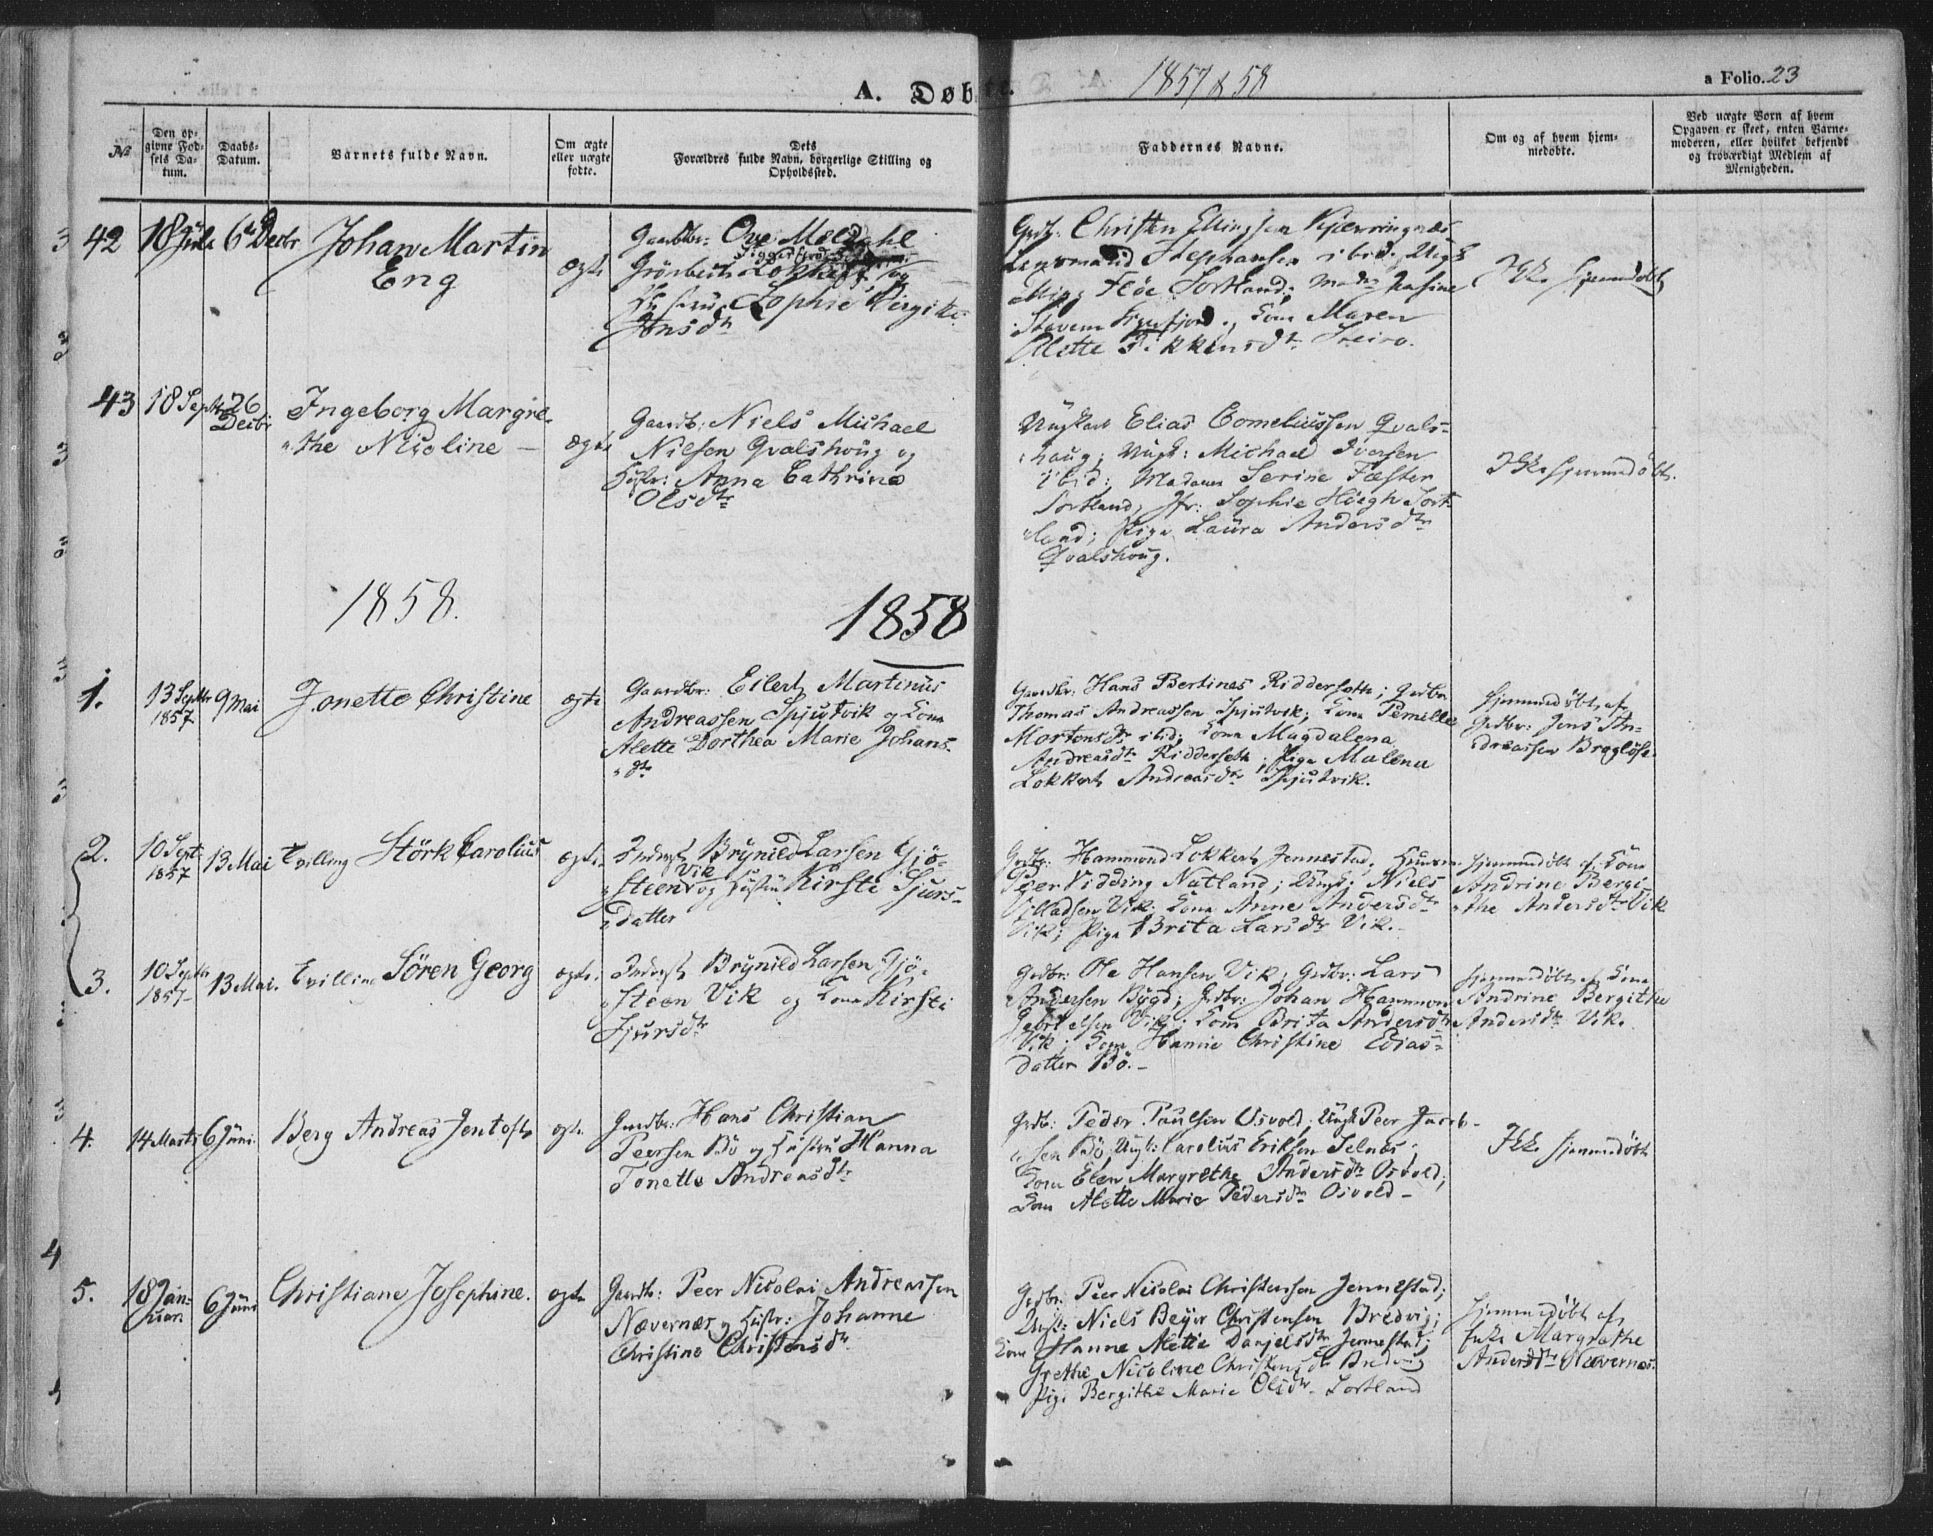 A. Døbte. 1857 & 58 a Folio. 23
No
Den op-
givne Fød-
sels Da-
tum.
Daabs-
Datum.
Barnets fulde Navn.
Om ægte
eller uægte
fødte.
Dets
Forældres fulde Navn, borgerlige Stilling og
Opholdssted.
Faddernes Navne.
Om og af hvem hjem-
medøbte.
Ved uægte Børn af hvem
Opgaven er skeet, enten Barne-
moderen, eller hvilket bekjendt
og troværdigt Medlem af
Menigheden.
42 18 6te Decbr Johan Martin
Eng
ægte
Gaardbr: Ove Meldahl
Grönbech og
Sophie Birgitte
Grdb. Christen Ellingsen Kjerringnæs
Stephansen ibid; Ungk
Flöe Sortland; Mad:
Maren
Alette Steiro.
Ikke hjemmedøbt
43 18 Septbr 26
Decbr
Ingeborg Margre-
the Nicoline
ægte
Gaardb: Niels Michael
Nilsen Qvalshoug og
Hustr: Anna Cathrina
Olsdtr
Ungkarl Elias Corneliussen Qvals-
haug; Ungk: Michael Iversen
ibid; Madam Serine Fæster
Sortland; Jfr: Sophie Høegh Sort-
land; Pige Laura Andersdtr
Qvalshoug.
Ikke hjemmedøbt.
1858. 1858
1. 13 Septbr
1857
9 Mai
Jonette Christine
ægte
Gaardbr: Eilert Martinus
Andreassen Spjutvik og Kone
Alette Dorthea Marie Johans-
dtr
Gaardbr: Hans Bertines Ridderseth; Grdbr
Thomas Andreassen Spjutvik; Kone Pernille
Mortensdtr ibid; Kone Magdalena
Andreasdtr Ridderseth; Pige Malena
Lokkert Andreasdtr Spjutvik.
hjemmedøbt af
Grdbr: Jens An-
dreassen
2. 10 Sept
1857
13 Mai
Tvilling Störk Carolius
ægte
Inderst Brynild Larsen Gjö-
steen Vik og Hustru Kirsti Sjurs-
datter
Grdbr: Hammond Lokkert Jennestad;
Peer Vidding Natland; Ungk: Niels
Villadsen Vik; Kone Anne Andersdtr
Vik; Pige Brita Larsdtr Vik.
hjemmedøbt af Kone
Andrine Bergi-
the Andersdtr Vik
3. 10 Septbr
1857
13 Mai.
Tvilling Sören Georg
ægte.
Inderst Brynild Larsen Gjö-
steen Vik og Kone Kirsti
Sjursdtr
Grdbr: Ole Hansen Vik; Grdbr: Lars
Andersen Bygd; Grdbr: Johan Hammon
Vik; Kone Brita Andersdtr
Vik; Kone Hansie Christine Elias-
datter Bö.
hjemmedøbt af Kone
Andrine Bergithe
Andersdtr Vik.
4. 14 Marts 6 Juni.
Berg Andreas Jentoft
ægte.
Gaardbr: Hans Christian
Peersen Bö og Hustru Hanna
Tonette Andreasdtr
Grdb: Peder Paulsen Osvold; Ungk Peer Jacob-
sen Bö; Ungk: Carolius Eriksen Selnæs;
Kone Elen Margrethe Andersdtr Osvold;
Kone Alette Marie Pedersdtr Osvold
Ikke hjemmedøbt
5. 18 Jan-
uar
6 Juni
Christiane Josephine.
ægte
Gaardb: Peer Nicolai Andreassen
Nævernæs og Hustr: Johanne
Christine Christensdtr
Grdbr: Peer Nicolai Christensen Jennestad;
Ungk: Niels Beyer Christensen Bredvig;
Kone Hanne Mette Danjelsdtr Jennestad;
Grethe Nicoline Christensdtr Bredvig
Pige Bergithe Marie Olsdtr Sortland
hjemmedøbt af
Enke Margrethe
Andersdtr Nævernæs.